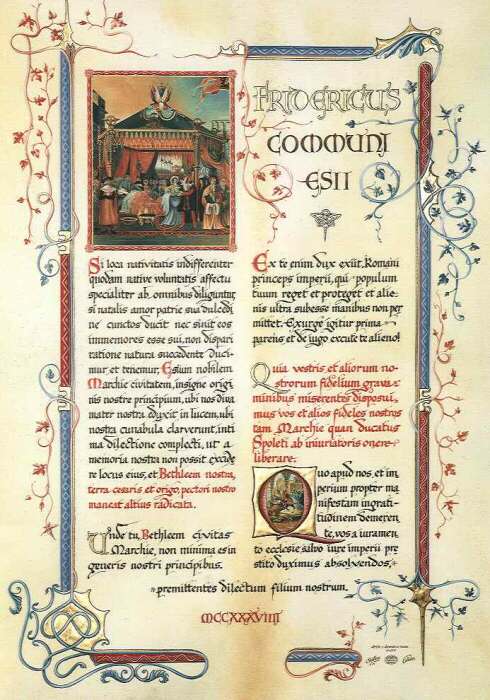 FRIDERICUS
COMMUNI
ESII
Si loca nativitatis indifferenter
quodam native voluntatis affectu
specialiter ab omnibus diliguntur,
si natalis amor patrie sua dulcedi
ne cunctos ducit nec sinit eos
immemores esse sui, non dispari
ratione natura succedente duci-
mur et tenemur, Esium nobilem
Marchie civitatem, insigne origi
nis nostre principium, ubi nos diva
mater nostra eduxit in lucem, ubi
nostra cunabula claruerunt, inti
ma dilectione complecti, ut a
memoria nostra non possit excide
re locus eius, et Bethleem nostra,
terra cesaris et origo, pectori nostro
maneat altius radicata.
Unde tu, Bethleem civitas
Marchie, non minima es in
generis nostri principibus.
Ex te enim dux exiit, Romani
princeps imperii, qui populum
tuum reget et proteget et alie-
nis ultra subesse manibus non per
mittet. Exurge igitur prima
parens et de iugo excute te alieno!
Quia vestris et aliorum no-
strorum fidelium grava-
minibus miserentes disposui,
mus vos et alios fideles nostros
tam Marchie quan ducatus
Spoleti ab iniuriatoris onere
liberare.
Quo apud nos, et im
perium propter ma
nifestam ingrati-
tudinem demeren
te, vos a iuramen
to ecclesie salvo iure imperii pre
stito duximus absolvendos,
premittentes dilectum filium nostrum.
MCCXXXVIIII